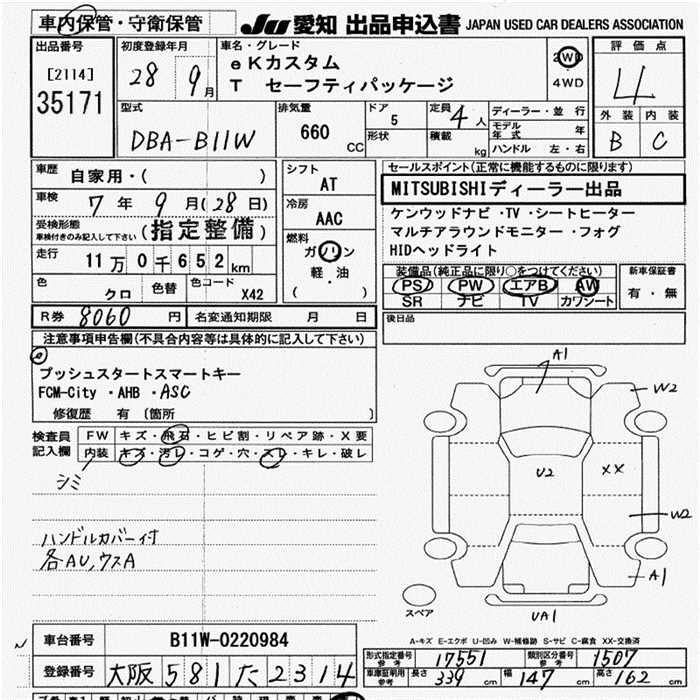 車内保管・守衛保管 JU 愛知 出品申込書 JAPAN USED CAR DEALERS ASSOCIATION
出品番号 [2114] 35171
初度登録年月 28 9月
車名・グレード eKカスタム
T セーフティパッケージ
2WD・4WD
評価点 4
外装 内装
B C
型式 DBA-B11W
排気量 660 CC
ドア 5 形状
定員 4人 積載 kg
ディーラー・並行
モデル年式 年
ハンドル 左・右
車歴 自家用・( )
車検 7年 9月(28日)
受検形態 車検付きのみ記入して下さい (指定整備)
走行 11万0千652km
色 クロ 色替 色コード X42
シフト AT
冷房 AAC
燃料 ガソリン
軽・油
( )
セールスポイント(正常に機能するものに限ります)
MITSUBISHIディーラー出品
ケンウッドナビ・TV・シートヒーター
マルチアラウンドモニター・フォグ
HIDヘッドライト
装備品(純正品に限り○をつけてください)
PS PW エアB AW
SR ナビ TV カワシート
新車保証書
有・無
R券 8060円 名変通知期限 月 日
後日品
注意事項申告欄(不具合内容等は具体的に記入して下さい)
プッシュスタートスマートキー
FCM-City・AHB・ASC
修復歴 有 〔箇所 〕
検査員記入欄
FW キズ・飛石・ヒビ割・リペア跡・X要
内装 キズ・汚レ・コゲ・穴・スレ・キレ・破レ
シミ
ハンドルカバー付
各AU,ウスA
A1
W2
U2
XX
W2
A1
UA1
スペア
A-キズ E-エクボ U-凹み W-補修跡 S-サビ C-腐食 XX-交換済
車台番号 B11W-0220984
登録番号 大阪 581 た 2314
形式指定番号 参考 17551 類別区分番号 参考 1507
車庫証明用 参考 長さ 339cm 幅 147cm 高さ 162cm